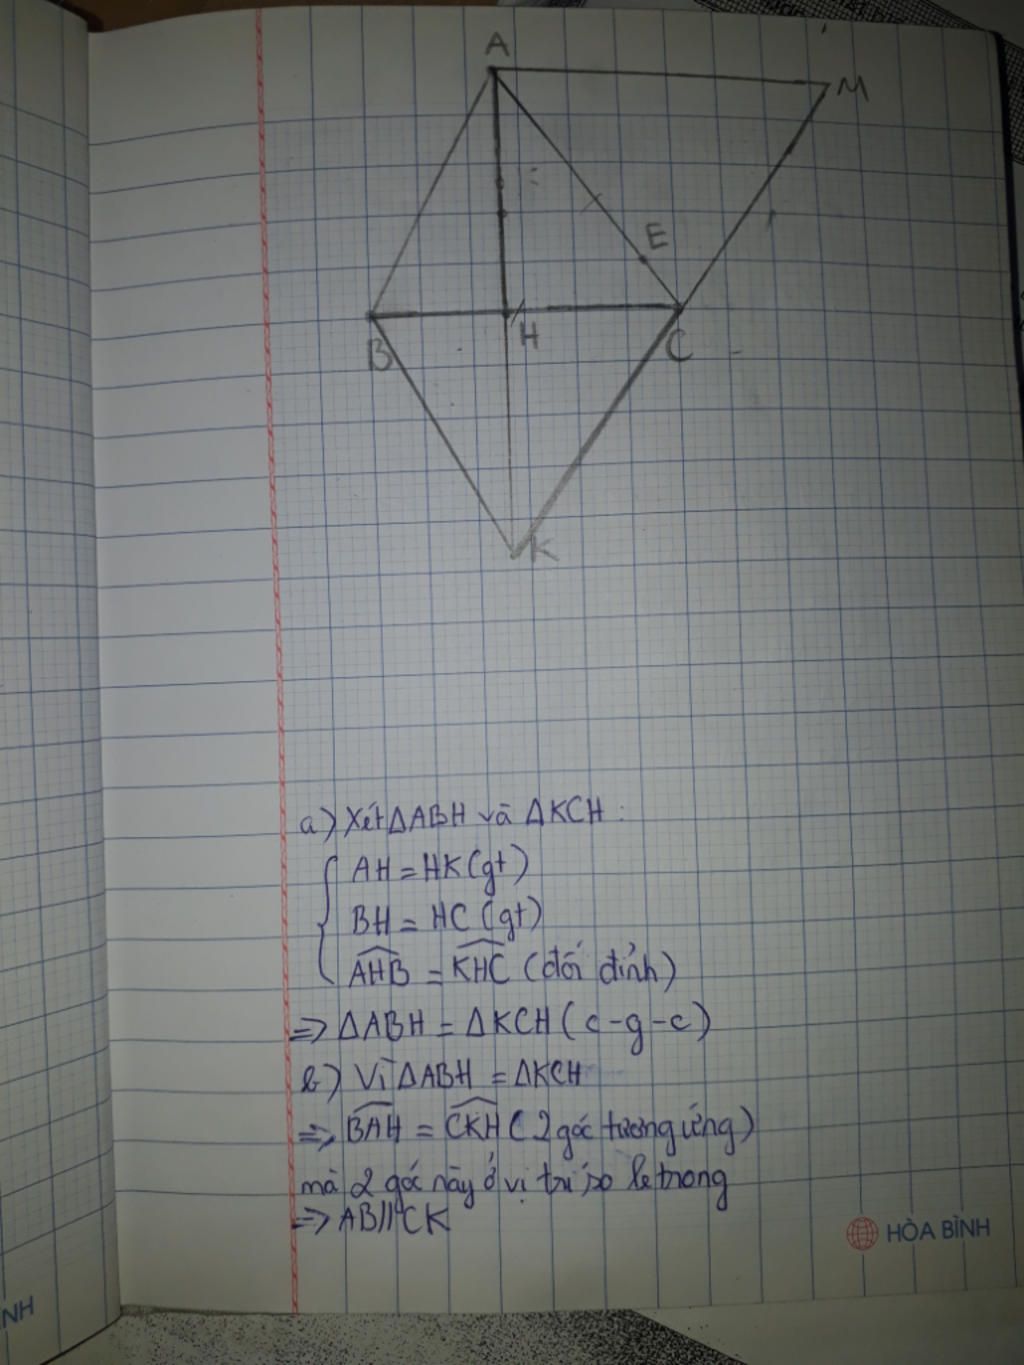 A
M
E
B
H
C
K
a) Xét ΔABH và ΔKCH:
AH = HK (gt)
BH = HC (gt)
\widehat{AHB} = \widehat{KHC} (đối đỉnh)
=> ΔABH = ΔKCH (c-g-c)
b) Vì ΔABH = ΔKCH
=> \widehat{BAH} = \widehat{CKH} (2 góc tương ứng)
mà 2 góc này ở vị trí so le trong
=> AB//CK
HÒA BÌNH
NH